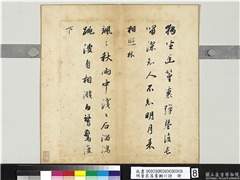 獨坐幽篁裏彈琴復長
嘯深人不知明月來
相照 林
颯〻秋雨中淺〻石溜瀉
跳波自相濺白鷺驚復
下
8